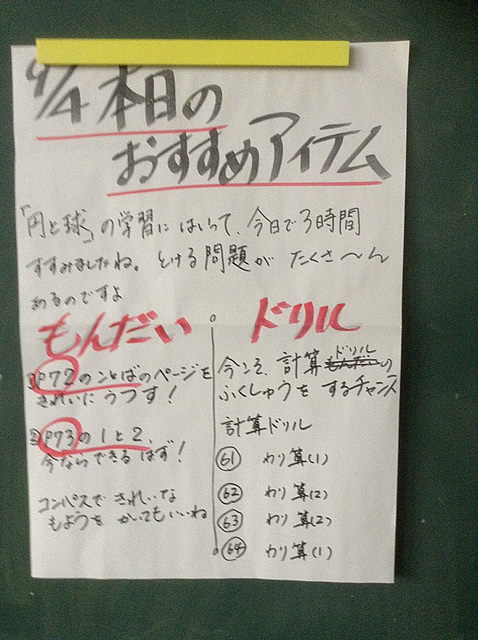 9/4 本日の
おすすめアイテム
「円と球」の学習にはいって、今日で3時間
すすみましたね。とける問題が たくさ〜ん
あるのですよ
もんだい
①P72のことばのページを
きれいにうつす!
②P73の1と2、
今ならできるはず!
コンパスで きれいな
もようを かいてもいいね
ドリル
今こそ、計算ドリルの
ふくしゅうを するチャンス
計算ドリル
61 わり算(1)
62 わり算(2)
63 わり算(2)
64 わり算(1)